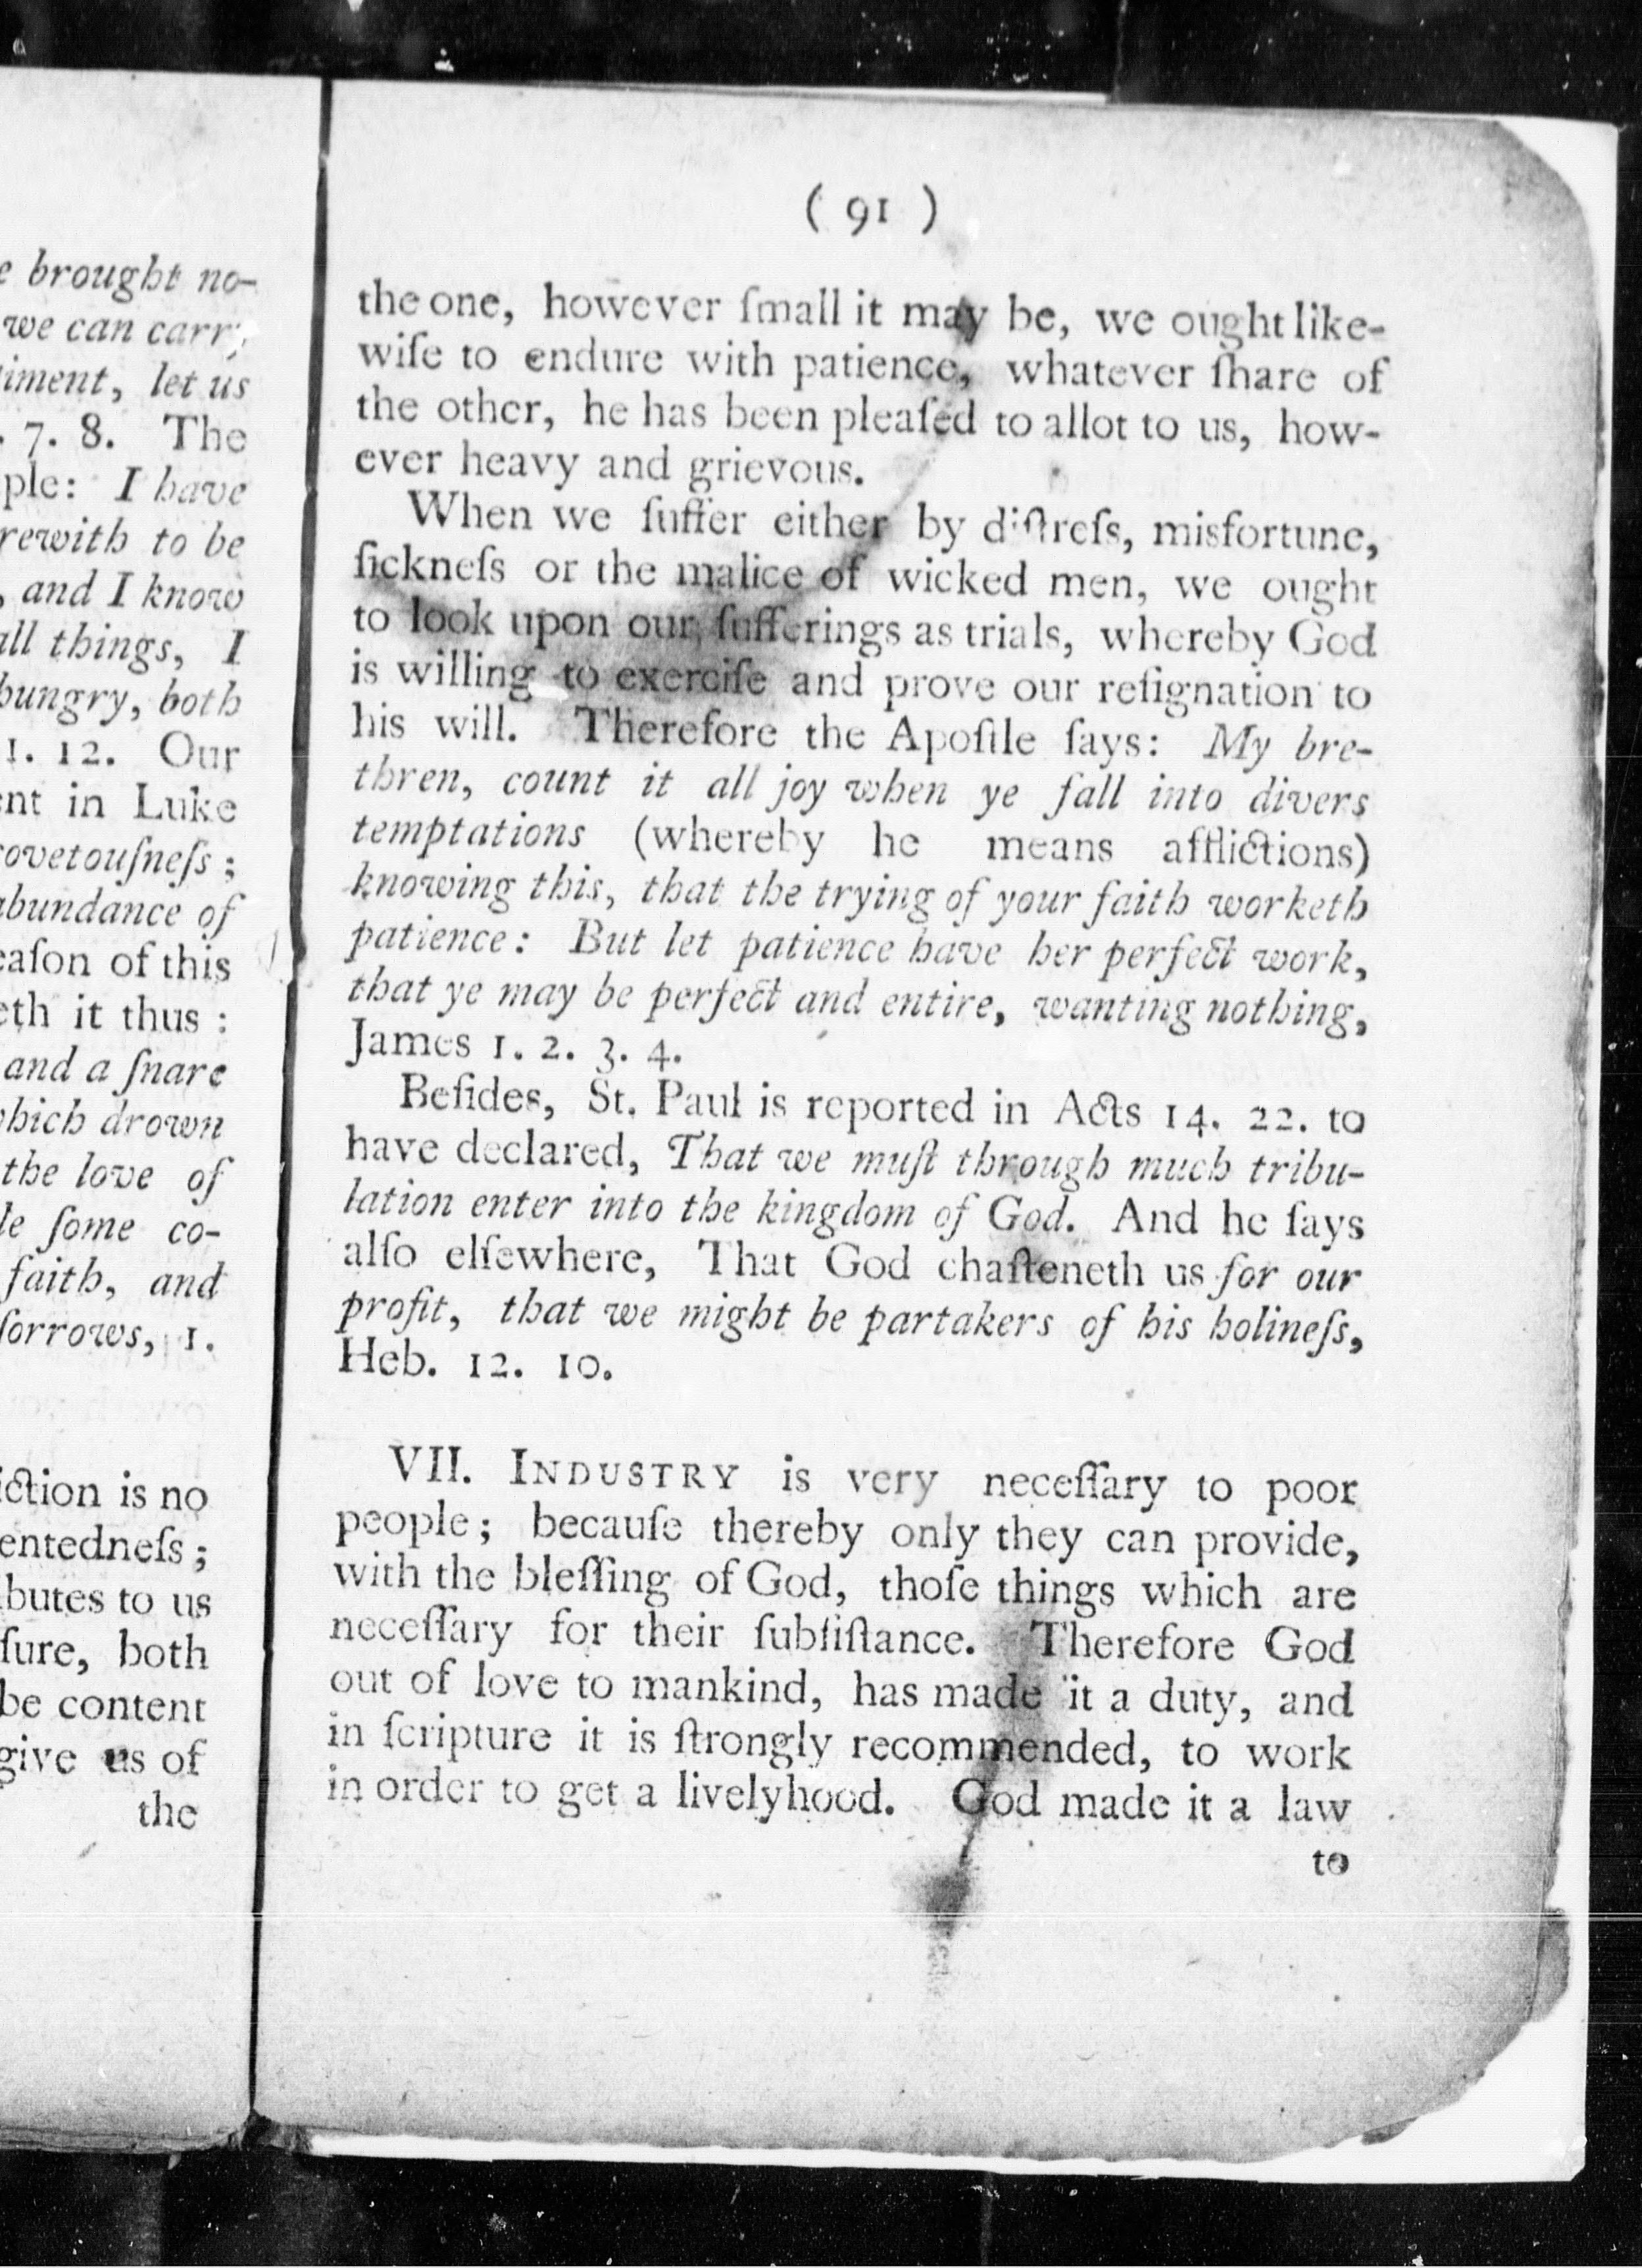 e brought no-
we can carry
timent, let us
. 7. 8. The
ple: I have
rewith to be
, and I know
all things, I
hungry, both
1. 12. Our
ent in Luke
covetouſneſs;
abundance of
eaſon of this
eth it thus:
and a ſnare
which drown
the love of
le ſome co-
faith, and
ſorrows, 1.
iction is no
entedneſs;
butes to us
ſure, both
be content
give us of
the
( 91 )
the one, however ſmall it may be, we ought like-
wiſe to endure with patience, whatever ſhare of
the other, he has been pleaſed to allot to us, how-
ever heavy and grievous.
When we ſuffer either by diſtreſs, misfortune,
ſickneſs or the malice of wicked men, we ought
to look upon our ſufferings as trials, whereby God
is willing to exerciſe and prove our reſignation to
his will. Therefore the Apoſtle ſays: My bre-
thren, count it all joy when ye fall into divers
temptations (whereby he means afflictions)
knowing this, that the trying of your faith worketh
patience: But let patience have her perfect work,
that ye may be perfect and entire, wanting nothing,
James 1. 2. 3. 4.
Beſides, St. Paul is reported in Acts 14. 22. to
have declared, That we muſt through much tribu-
lation enter into the kingdom of God. And he ſays
alſo elſewhere, That God chaſteneth us for our
profit, that we might be partakers of his holineſs,
Heb. 12. 10.
VII. INDUSTRY is very neceſſary to poor
people; becauſe thereby only they can provide,
with the bleſſing of God, thoſe things which are
neceſſary for their ſubſiſtance. Therefore God
out of love to mankind, has made it a duty, and
in ſcripture it is ſtrongly recommended, to work
in order to get a livelyhood. God made it a law
to